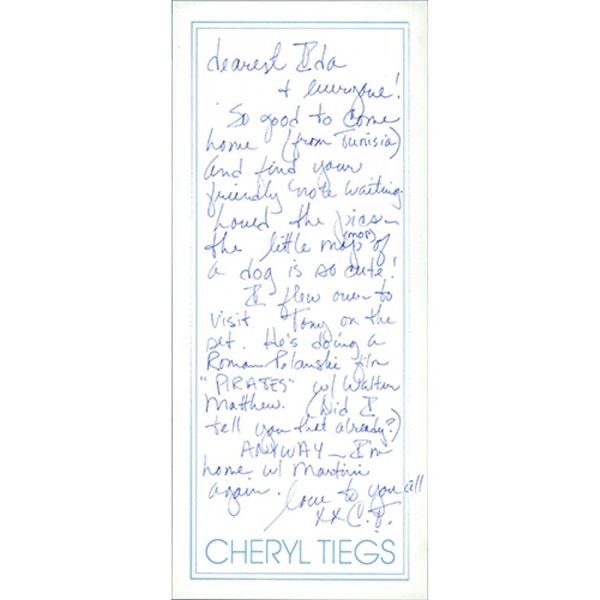 dearest Ida
+ everyone!
So good to come
home (from Tunisia)
and find your
friendly note waiting.
Loved the pics –
the little mop (mop) of
a dog is so cute!
I flew over to
visit Tony on the
set. He's doing a
Roman Polanski film
"PIRATES" w/ Walter
Matthew. (Did I
tell you that already?)
ANYWAY – I'm
home w/ Martini
again. Love to you all
xx C.T.
CHERYL TIEGS